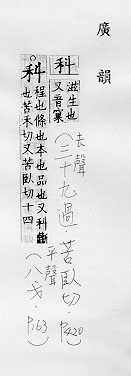 廣韻
科
滋生也
又音窠
(去聲 三十九過 苦臥切. P420.)
科
程也條也本也品也又科
也苦禾切又苦臥切十四
(平聲 八戈. P163)